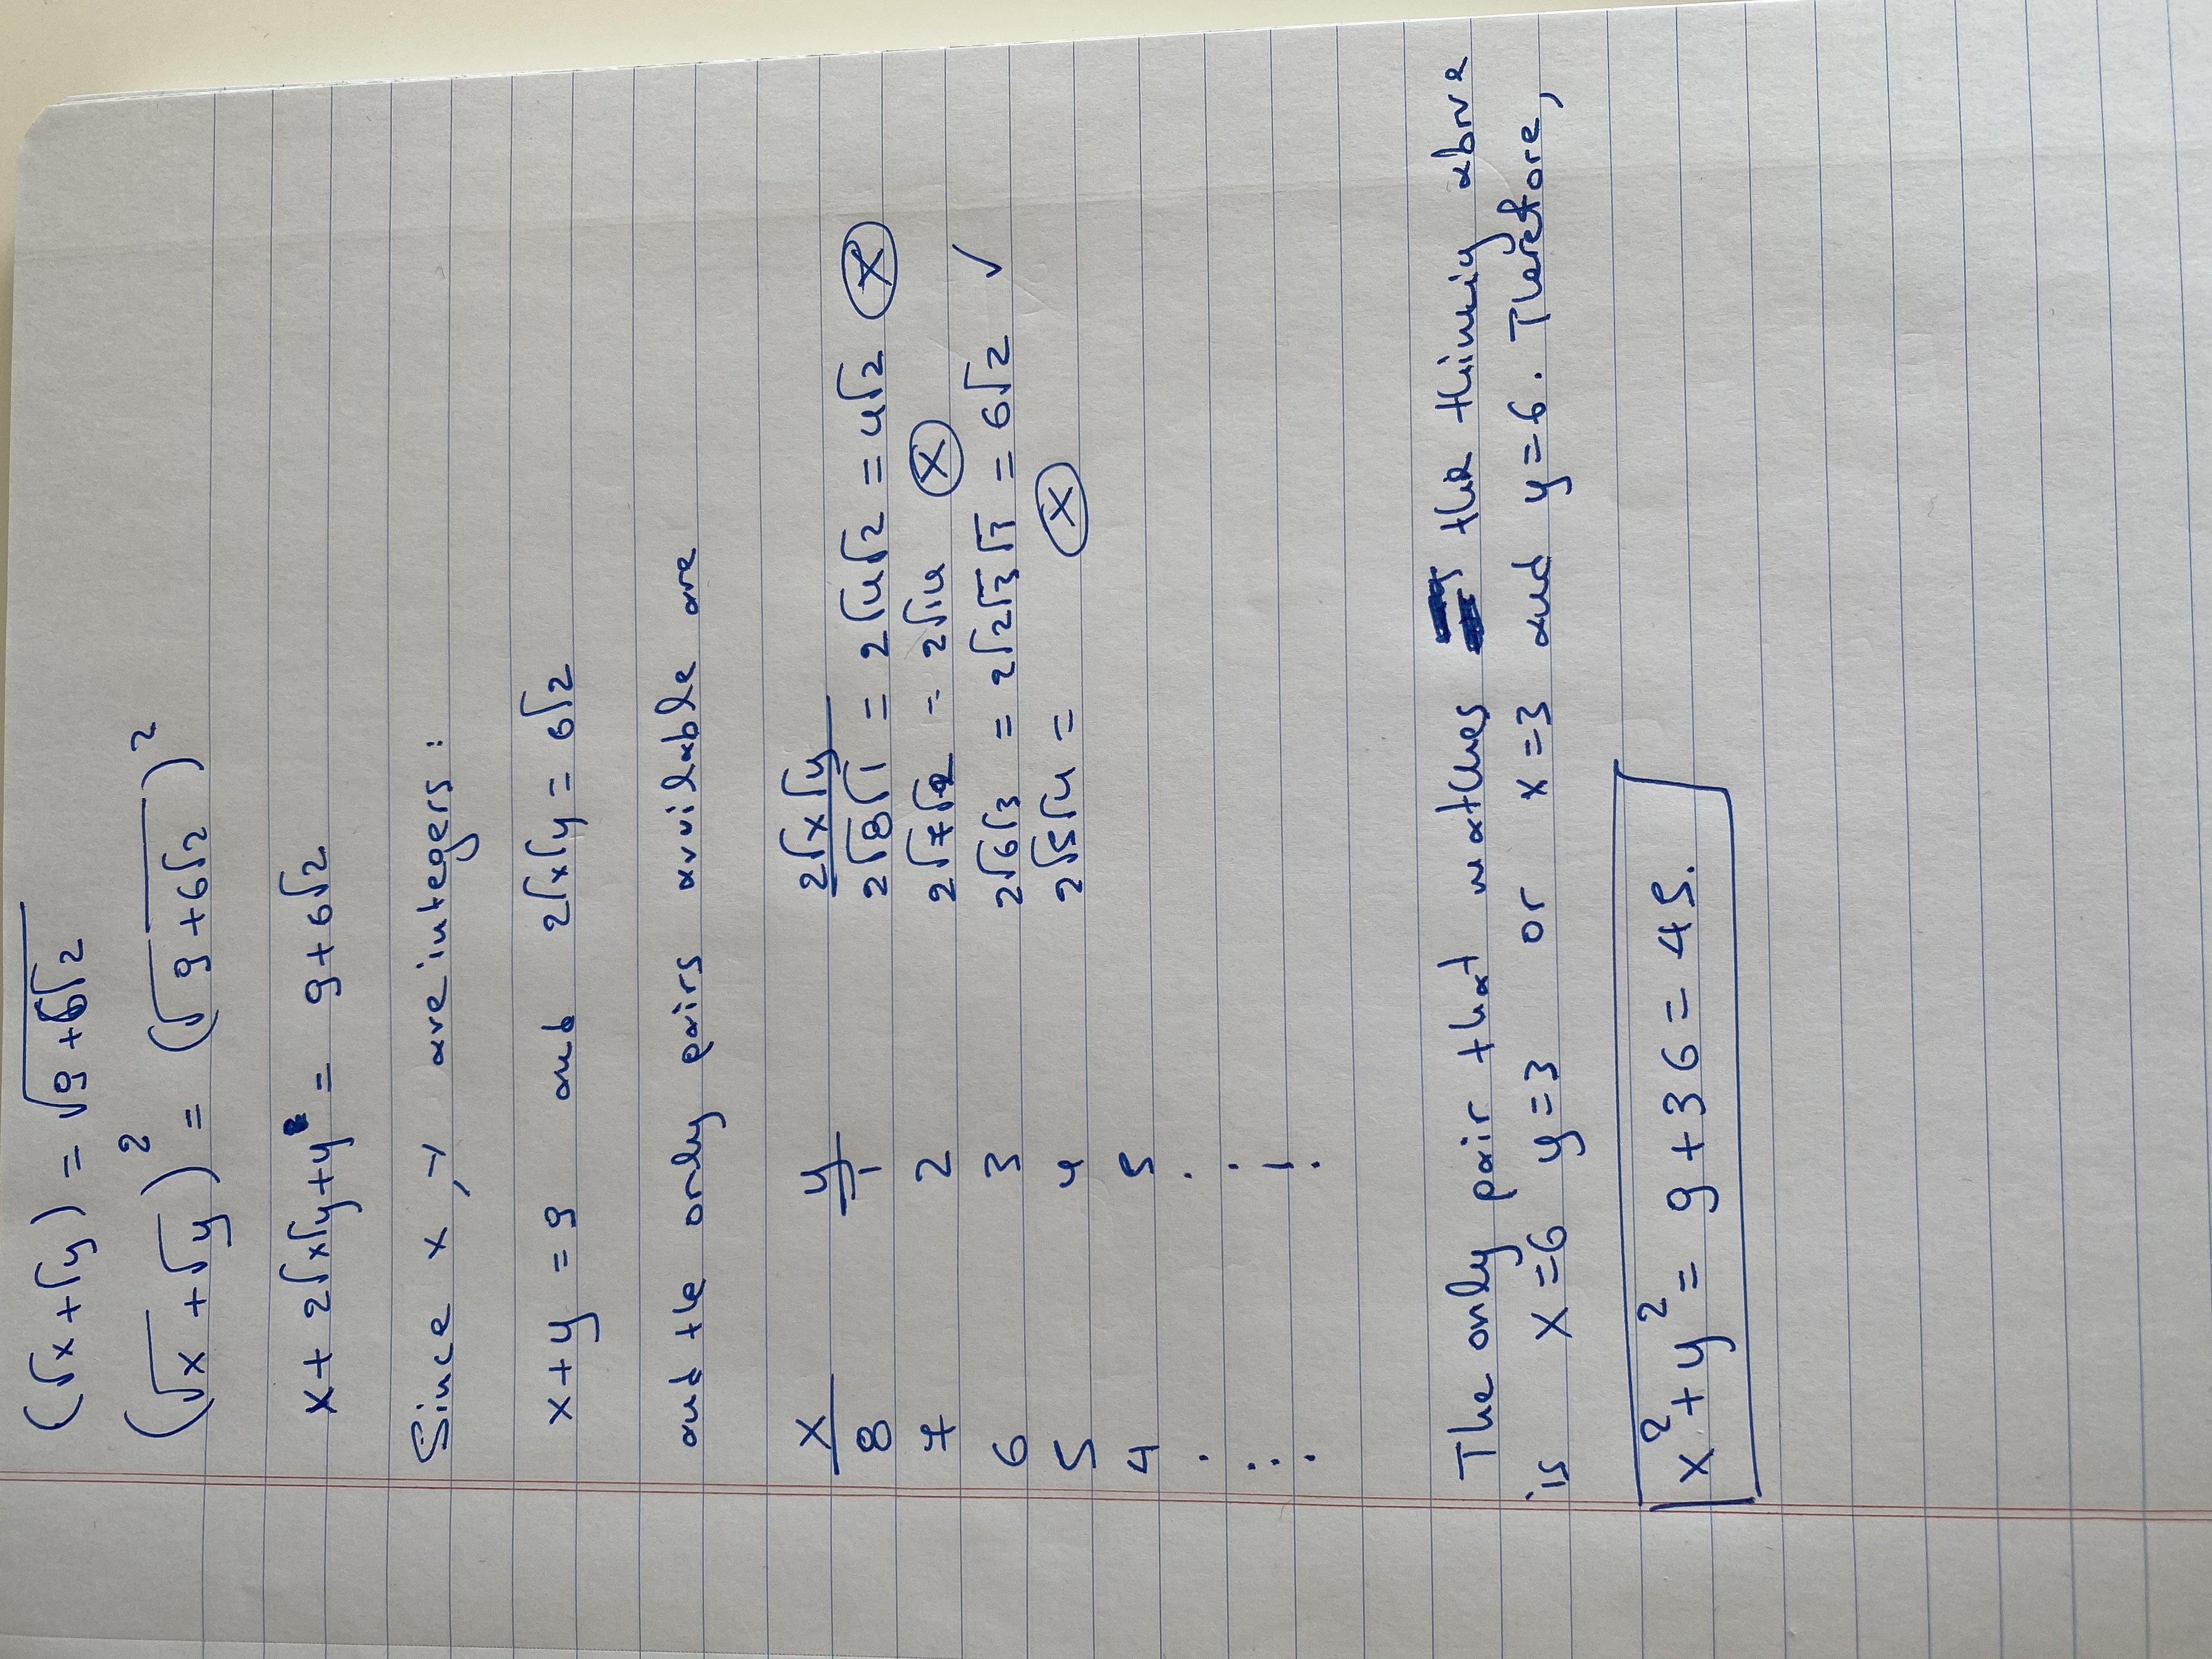 (√x + √y) = √(9 + 6√2)
(√x + √y)² = (√(9 + 6√2))²
x + 2√x√y + y = 9 + 6√2
Since x, y are integers:
x + y = 9 and 2√x√y = 6√2
and the only pairs available are
x y 2√x√y
8 1 2√8√1 = 2√4√2 = 4√2 ⓧ
7 2 2√7√2 = 2√14 ⓧ
6 3 2√6√3 = 2√2√3√3 = 6√2 ✓
5 4 2√5√4 = ⓧ
4 5
. .
. .
. .
The only pair that matches the above
is x = 6 y = 3 or x = 3 and y = 6. Therefore,
x² + y² = 9 + 36 = 45.